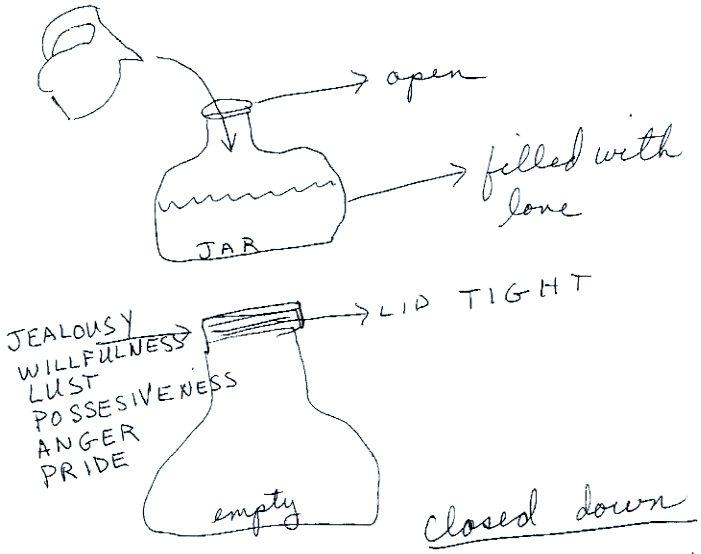 open
filled with
love
JAR
LID TIGHT
JEALOUSY
WILLFULNESS
LUST
POSSESIVENESS
ANGER
PRIDE
empty
closed down